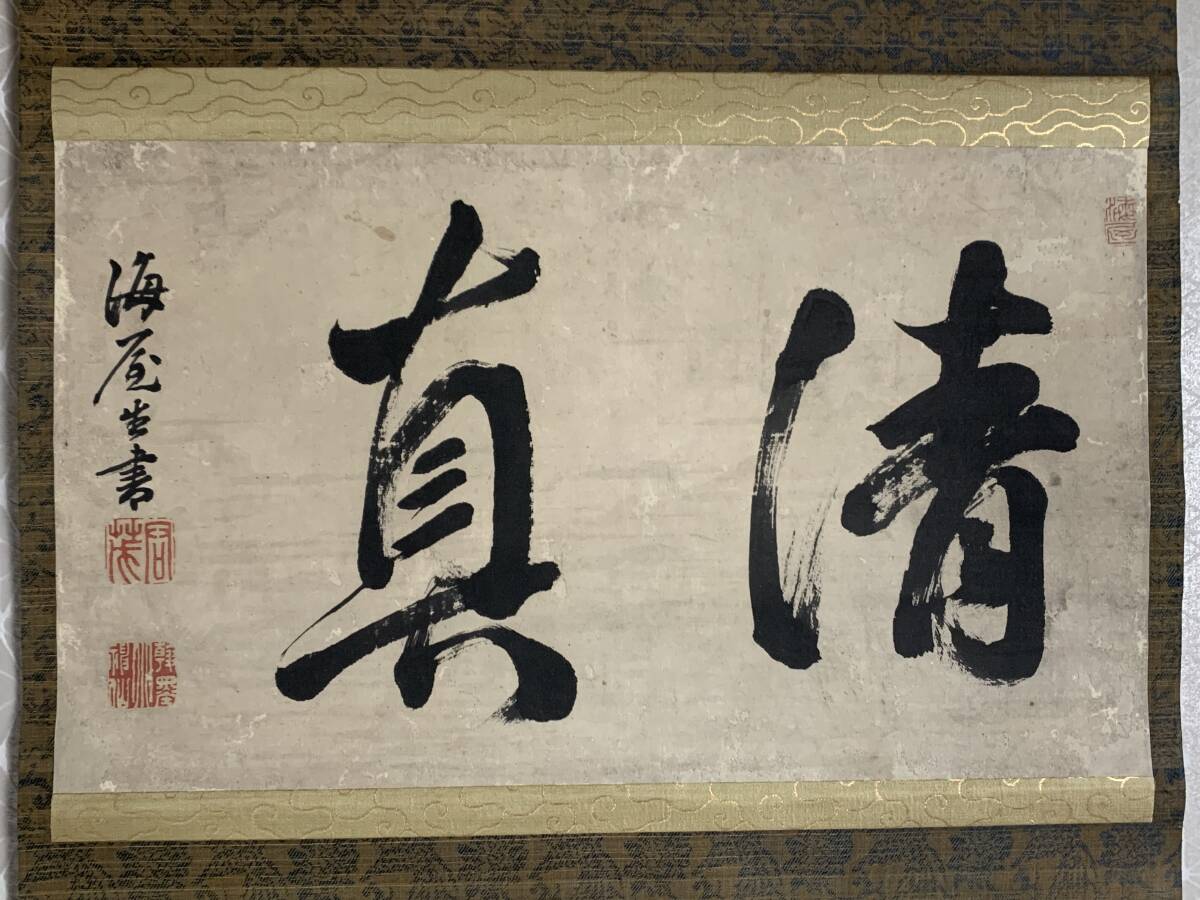 清
真
海屋生書